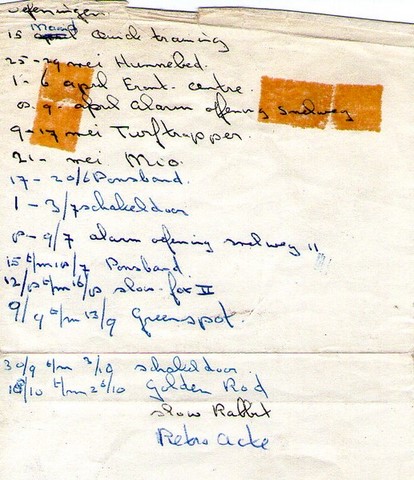 oefeningen.
15 Maart Quick training
25-29 mei Hunnebed.
1-6 april Ermt. centre.
8-9- april Alarm oefening snelweg
9-17 mei Turftrapper.
21- mei Mio.
17-20/6 Ponsband.
1-3/7 schakeldoor
8-9/7 alarm oefening snelweg II
15 t/m 18/7 Ponsband.
12/8 t/m 16/8 slow-fox II
9/9 t/m 13/9 Greenspot.
30/9 t/m 3/10 schakeldoor.
18/10 t/m 26/10 Golden Rod
slow Rabbit
Retro Acte